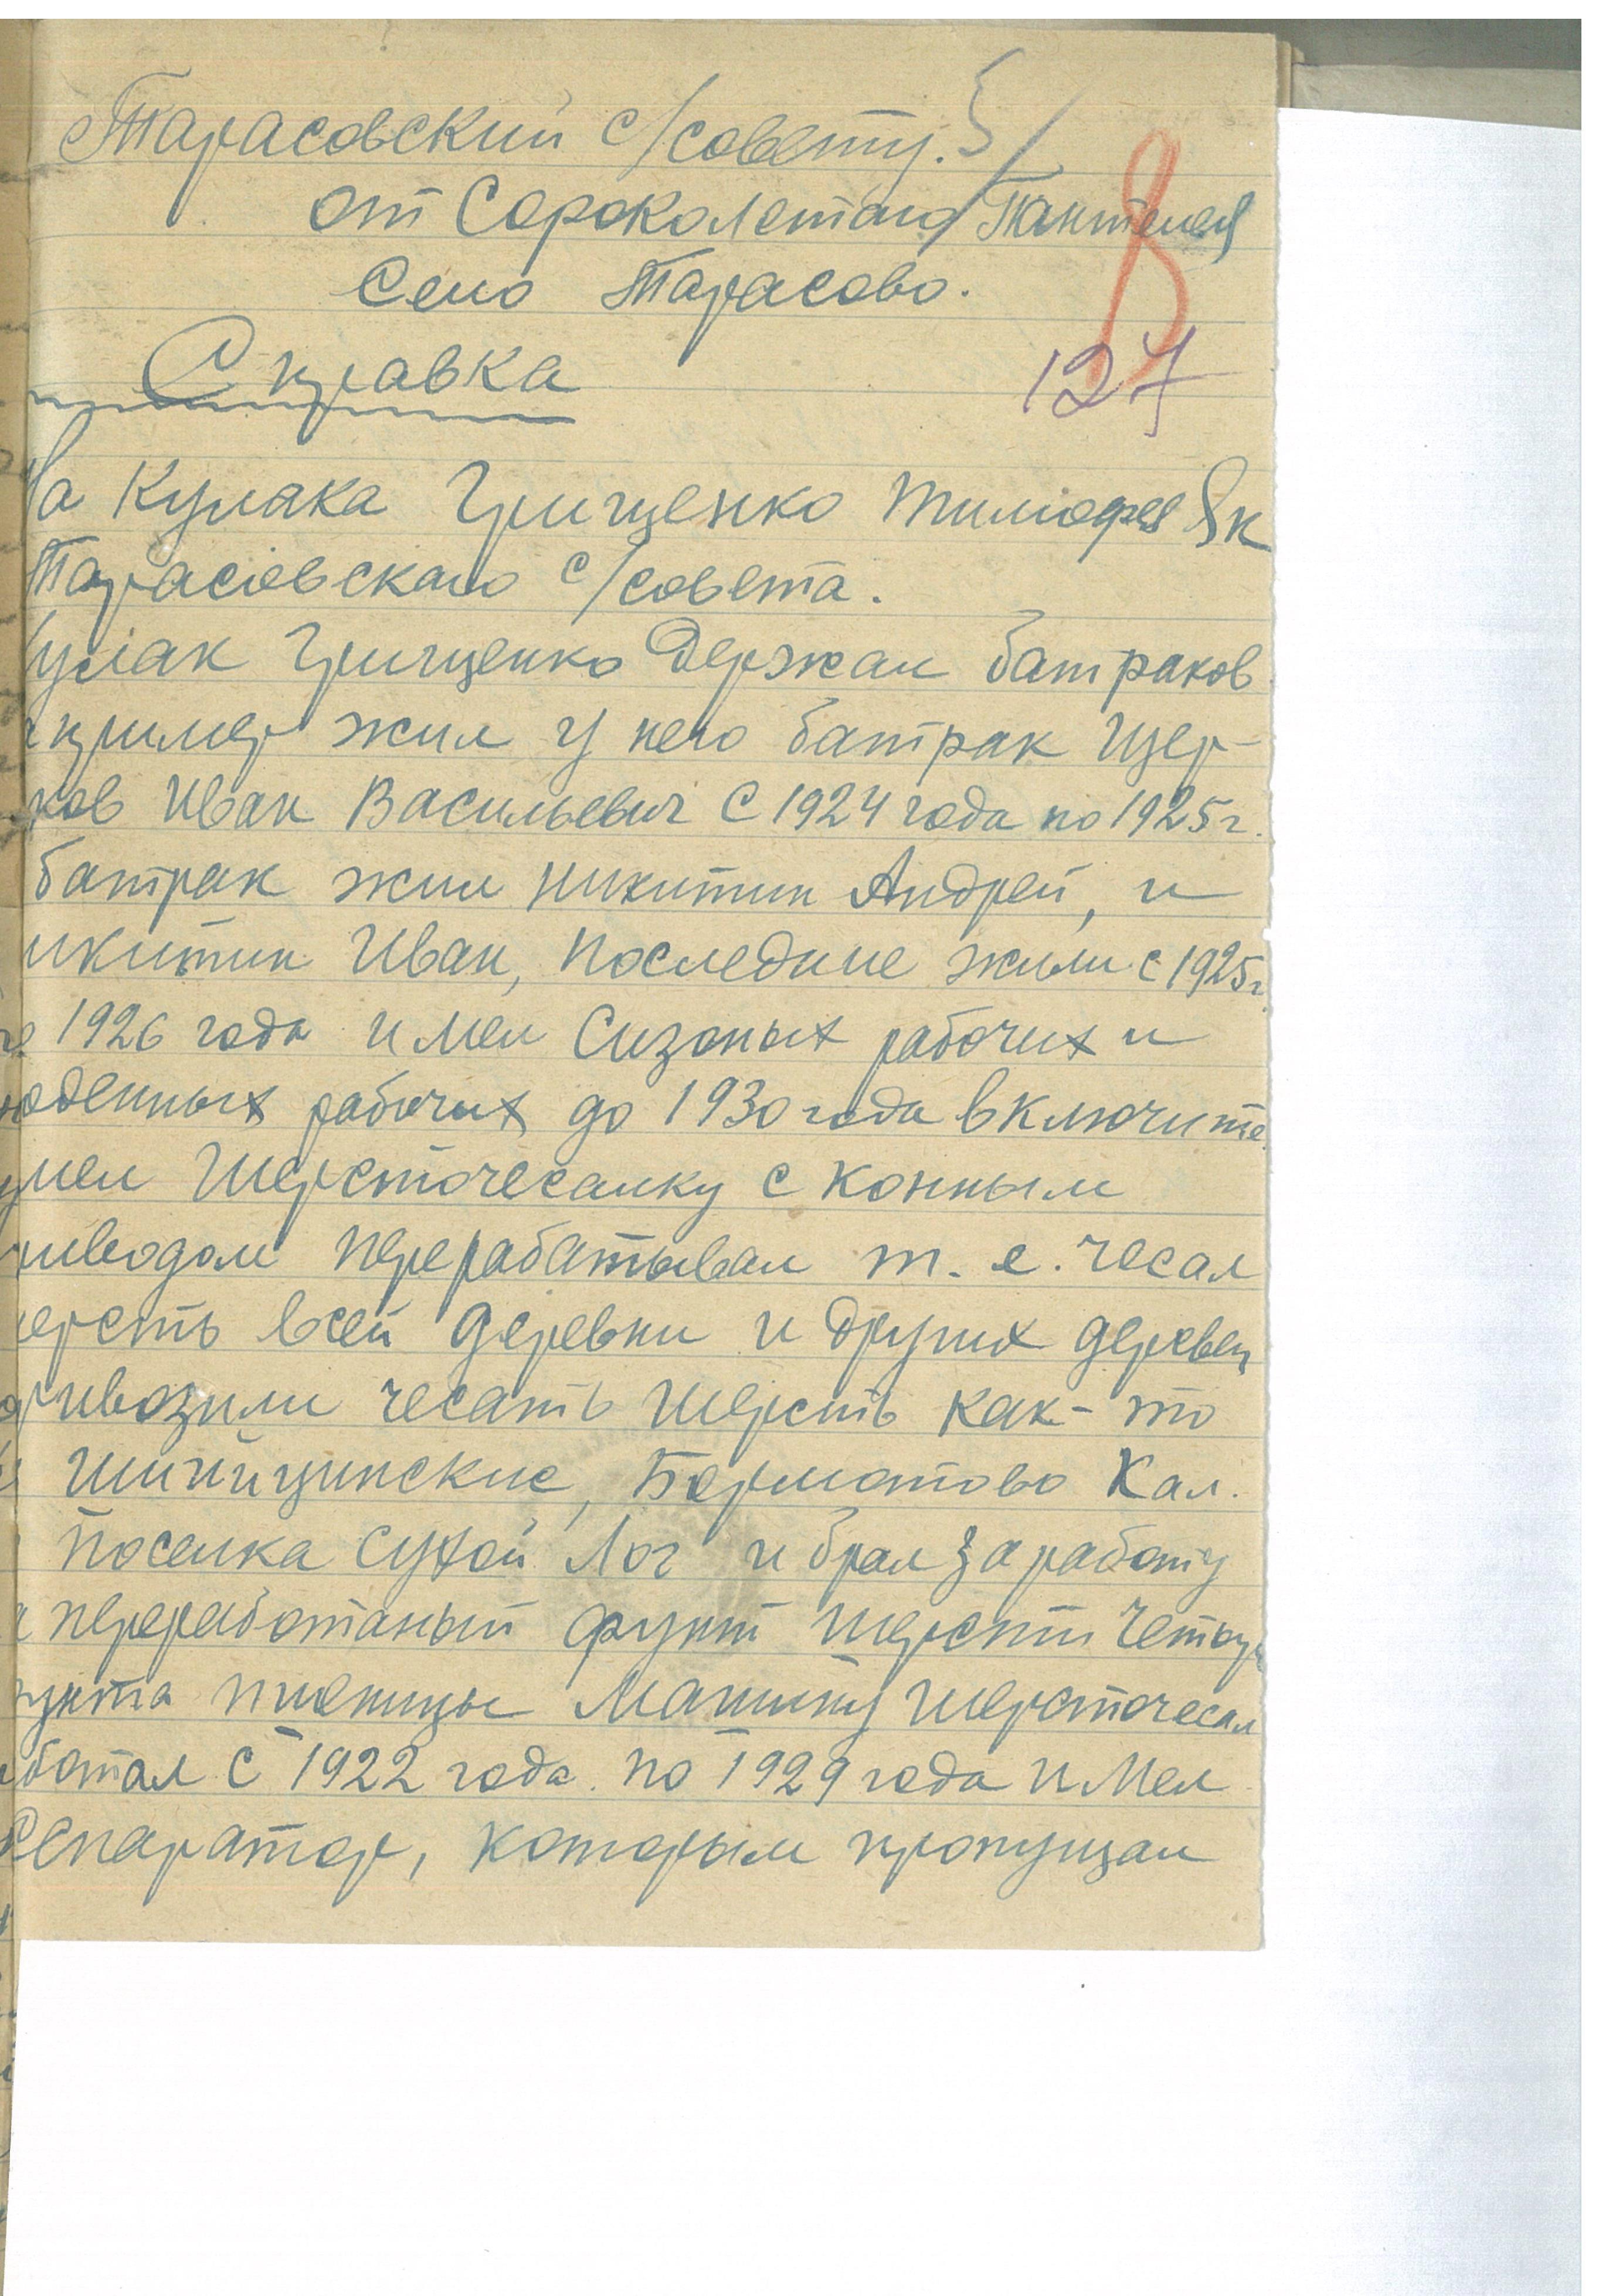 Тарасовский с/совету. 5/
от Сороколетаго Пантелея
Село Тарасово.
8
Справка
127
На Кулака Грищенко Тимофея Як
Тарасовскаго с/совета.
Кулак Грищенко Держал батраков
пример жил у него батрак Щер-
ков Иван Васильевич С 1924 года по 1925 г.
батрак жил Никитин Андрей, и
икитин Иван, последние жили с 1925 г
по 1926 года имел Сизоных рабочих и
оденных рабочих до 1930 года включите
имел Шерсточесалку с конным
иводом перерабатывал т. е. чесал
ерсть всей деревни и других деревен
ривозили чесать шерсть как-то
Шипицинские, Борматово Кал.
поселка Сухой Лог и брал за работу
а переработаный фунт шерсти четыр
унта пшеницы Машину шерсточесал
ботал С 1922 года по 1929 года имел
Сепаратор, которым пропущал